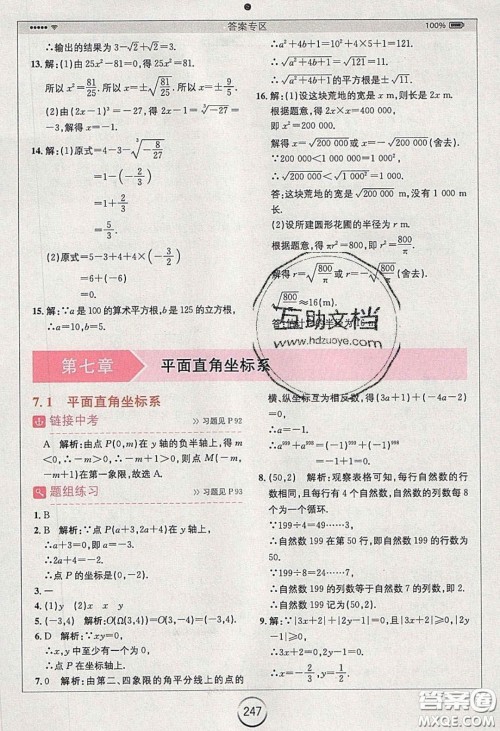 答案专区
100%
∴输出的结果为3-√2+√2=3.
13. 解:(1)由25x²-81=0,得25x²=81.
所以x²=81/25. 所以x=±√(81/25)=±9/5.
(2)由(2x-1)³=-27,得2x-1=∛(-27)
=-3. 解得x=-1.
14. 解:(1)原式=4-3-∛(-8/27)
=1-(-2/3)
=1+2/3
=5/3.
(2)原式=5-3+4+4×(-3/2)
=6+(-6)
=0.
15. 解:∵a是100的算术平方根,b是125的立方根,
∴a=10,b=5.
∴a²+4b+1=10²+4×5+1=121.
∴√(a²+4b+1)=√121=11.
∴√(a²+4b+1)的平方根是±√11.
16. 解:(1)设这块荒地的宽是x m,则长是2x m.
根据题意,得2x·x=400 000.
即x²=200 000.
解得x=√200 000或x=-√200 000(舍去).
∵200 000<1 000 000=1 000²,
∴√200 000<√1 000²=1 000.
答:这块荒地的宽是√200 000 m,没有1 000 m.
(2)设所建圆形花圃的半径为r m.
根据题意,得πr²=800,即r²=800/π.
解得r=√(800/π)或r=-√(800/π)(舍去).
√(800/π)≈16(m).
互助文档
www.hdzuoye.com
第七章 平面直角坐标系
7.1 平面直角坐标系
链接中考
>>习题见P92
A 解析:由点P(0,m)在y轴的负半轴上,得
m<0,∴-m>0,-m+1>0,则点M(-m,
-m+1)在第一象限,故选A.
题组练习
>>习题见P93
1. B
2. B 解析:∵点P(a+3,2a+4)在y轴上,
∴a+3=0,即a=-3.
∴2a+4=-2.
∴点P的坐标是(0,-2).
3. 一
4. (1)y (2)x x y
5. (-3,4) 解析:O(Ω(3,4))=O(3,-4)=(-3,4).
6. D 解析:∵xy=0,
∴x,y中至少有一个为0.
∴点P在坐标轴上.
7. 0 解析:由第二、四象限的角平分线上的点的
横、纵坐标互为相反数,得(3a+1)+(-4a-2)=0.
∴a=-1.
8. (50,2) 解析:观察表格可知,每行自然数的行
数相同,且每行有4个自然数,自然数的列数4个
为一个循环.
∵199÷4=49……3,
∴自然数199在第50行,即自然数199的行数
为50.
∵199÷8=24……7,
∴自然数199的列数等于自然数7的列数,即2.
∴自然数199记为(50,2).
9. 解:∵|3x+2|+|2y-1|=0,
且|3x+2|≥0,|2y-1|≥0,
∴|3x+2|=0,|2y-1|=0.
∴x=-2/3,y=1/2.
247
答案圈
MXQE.COM